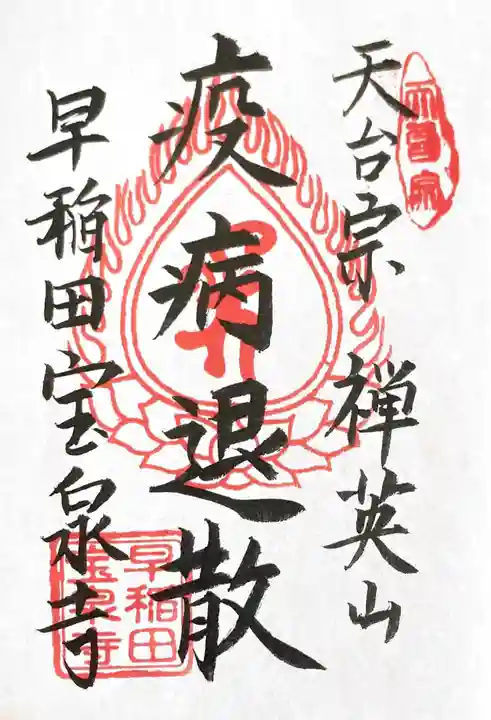 天台宗 禅英山
天台宗
疫病退散
早稲田宝泉寺
早稲田
宝泉寺